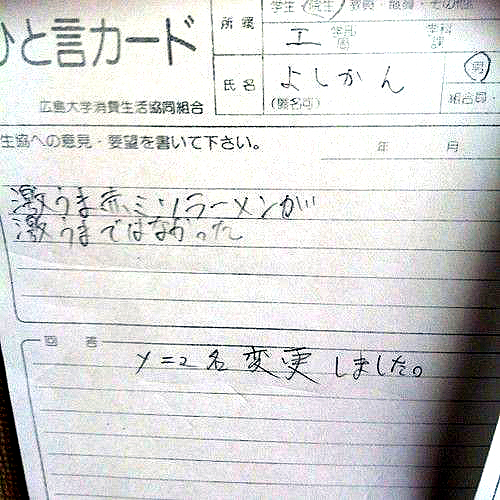 ひと言カード
所属
学生・院生・教員・職員・その他
工 学部
学科
課
氏名
(匿名可)
よしかん
男
組合員・
広島大学消費生活協同組合
生協への意見・要望を書いて下さい。
年 月
激うま赤ミソラーメンが
激うまではなかった
回答
メニュー名変更しました。